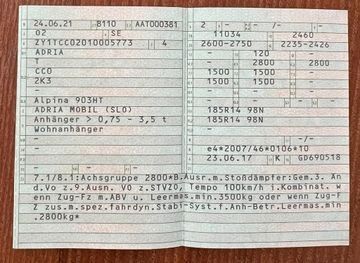 24.06.21 8110 AAT000381
02 SE
ZY1TCC02010005773 4
ADRIA
T
CCO
2K3
-
Alpina 903HT
ADRIA MOBIL (SLO)
Anhänger > 0,75 - 3,5 t
Wohnanhänger
-
2 - - -/-
11034 2460
2600-2750 2235-2426
- 120 -
- 2800 2800
1500 1500 -
1500 1500 -
- - -
185R14 98N
185R14 98N
-
- -/-
e4*2007/46*0106*10
23.06.17 K GD690518
7.1/8.1:Achsgruppe 2800*B.Ausr.m.Stoßdämpfer:Gem.3. An
d.Vo z.9.Ausn. VO z.STVZO, Tempo 100km/h i.Kombinat. w
enn Zug-Fz m.ABV u. Leermas.min.3500kg oder wenn Zug-F
Z zus.m.spez.fahrdyn.Stabi-Syst.f.Anh-Betr.Leermas.min
.2800kg*